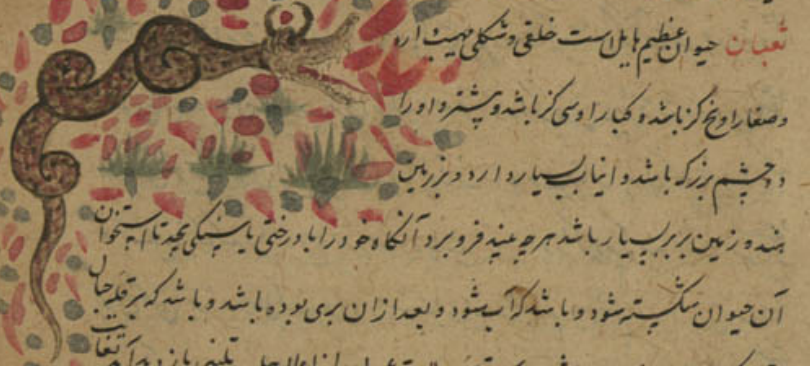 ثعبان حیوان عظیم هایل است خلقی و شکلی مهیب دارد
و صغار او پنج کز باشد و کبار او سی کز باشد و بیشتر و او را
دو چشم بزرک باشد و انیاب بسیار دارد و در زمین
هند و زمین بربر بسیار باشد هرچه بیند فرو برد آنکاه خود را با درختی یا سنکی پیچد تا استخوان
آن حیوان شکسته شود و باشد که آب شود و بعد از ان بری بوده باشد و باشد که بر قله جبال